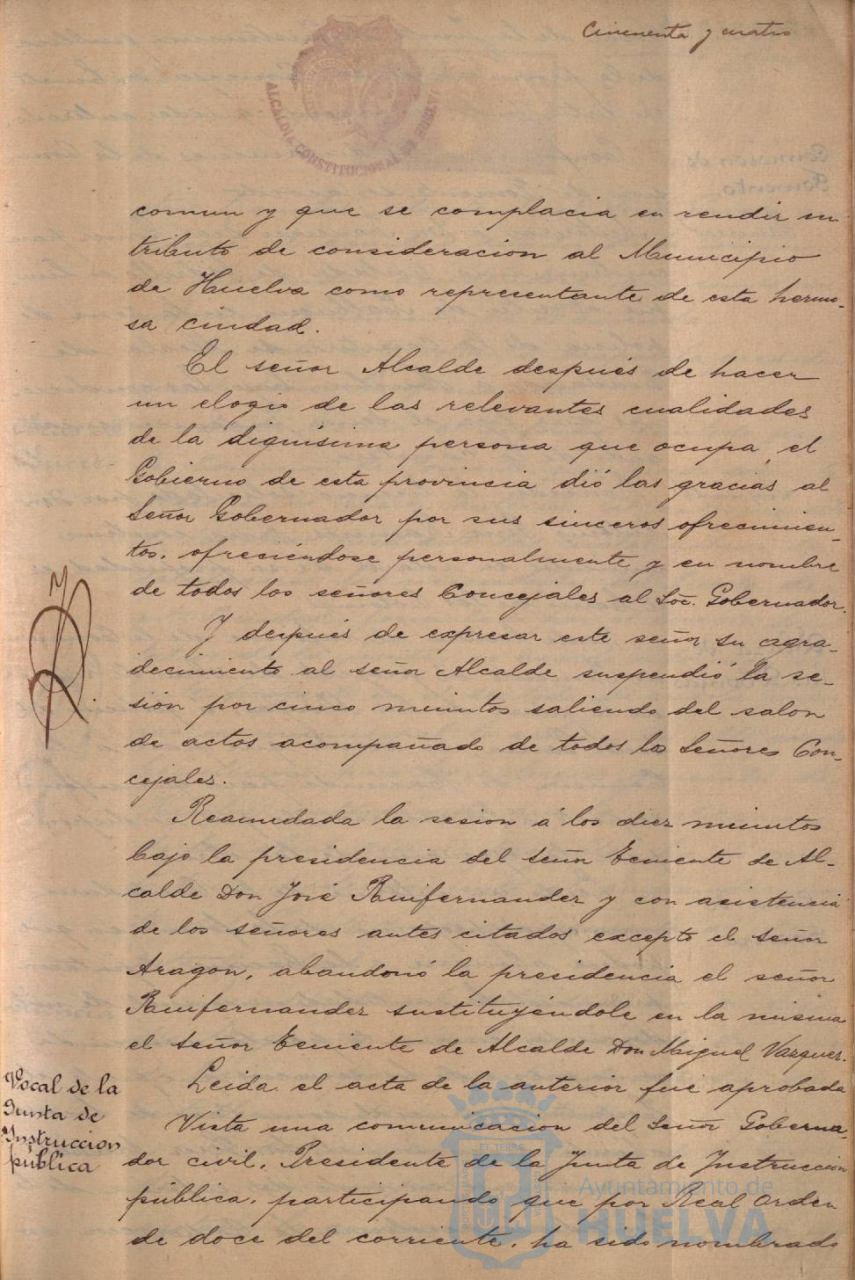 Cincuenta y cuatro
ALCALDIA CONSTITUCIONAL DE
comun y que se complacia en rendir un
tributo de consideracion al Municipio
de Huelva como representante de esta hermo-
sa ciudad.
El señor Alcalde después de hacer
un elogio de las relevantes cualidades
de la dignísima persona que ocupa el
Gobierno de esta provincia dió las gracias al
Señor Gobernador por sus sinceros ofrecimien-
tos, ofreciéndose personalmente y en nombre
de todos los señores Concejales al Sor. Gobernador.
Y después de expresar este señor su agra-
decimiento al señor Alcalde suspendió la se-
sión por cinco minutos saliendo del salon
de actos acompañado de todos los Señores Con-
cejales.
Reanudada la sesion á los diez minutos
bajo la presidencia del señor Teniente de Al-
calde Don José Ruifernandez y con asistencia
de los señores antes citados excepto el señor
Aragon, abandonó la presidencia el señor
Ruifernandez sustituyéndole en la misma
el señor Teniente de Alcalde Don Miguel Vazquez.
Leida el acta de la anterior fué aprobada
Vocal de la
Junta de
Instruccion
pública
Vista una comunicacion del Señor Goberna-
dor civil, Presidente de la Junta de Instruccion
pública, participando que por Real Orden
de doce del corriente, ha sido nombrado
Ayuntamiento de
HUELVA